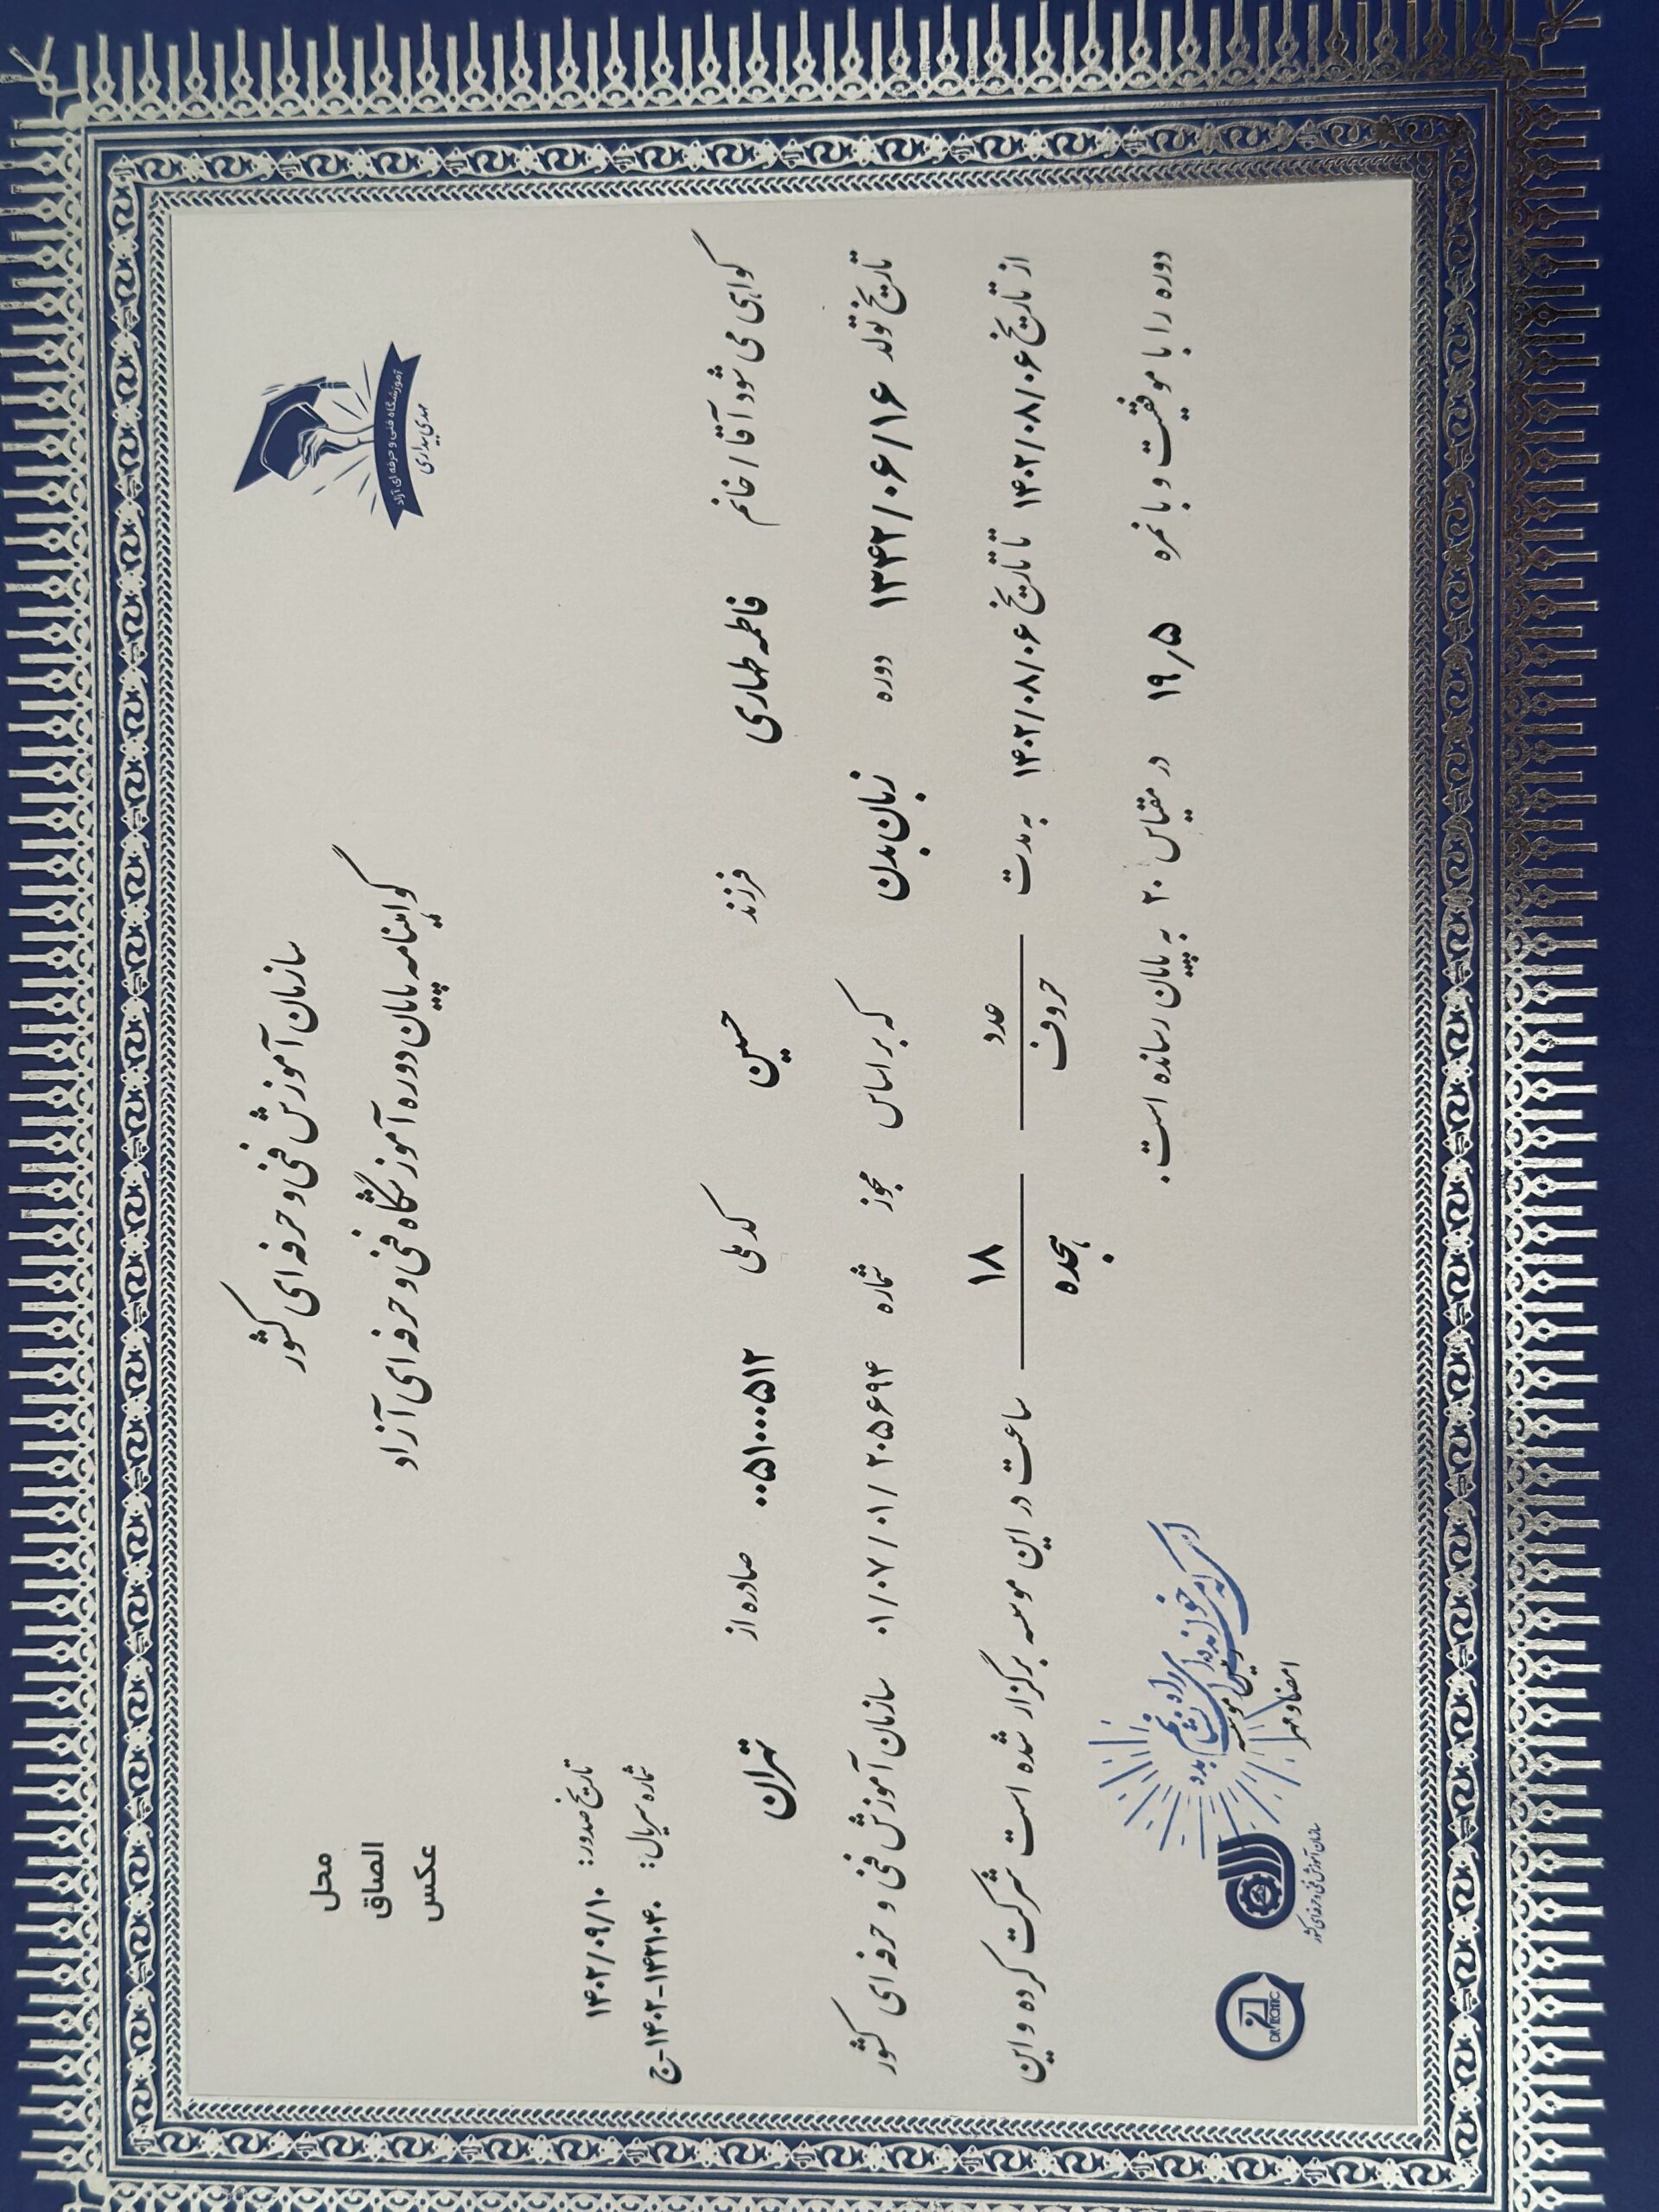 سازمان آموزش فنی و حرفه ای کشور
گواهینامه پایان دوره آموزشگاه فنی و حرفه ای آزاد
آموزشگاه فنی و حرفه ای آزاد
مهدی بیداری
محل
الصاق
عکس
تاریخ صدور: ۱۴۰۲/۰۹/۱۰
شماره سریال: ۱۴۰۲-۱۴۲۱۰۴۰-ج
گواهی می شود آقا / خانم فاطمه طهاری فرزند حسین کد ملی ۰۰۵۱۰۰۰۰۵۱۲ صادره از تهران
تاریخ تولد ۱۳۴۲/۰۶/۱۶ دوره زبان بدن که بر اساس مجوز شماره ۰۱/۰۷/۰۱/۲۰۵۶۹۴ سازمان آموزش فنی و حرفه ای کشور
از تاریخ ۱۴۰۲/۰۸/۰۶ تا تاریخ ۱۴۰۲/۰۸/۰۶ به مدت عدد حروف ۱۸ هجده ساعت در این موسسه برگزار شده است شرکت کرده و این
دوره را با موفقیت و با نمره ۱۹/۵ در مقیاس ۲۰ به پایان رسانده است.
امضا و مهر
سازمان آموزش فنی و حرفه ای کشور